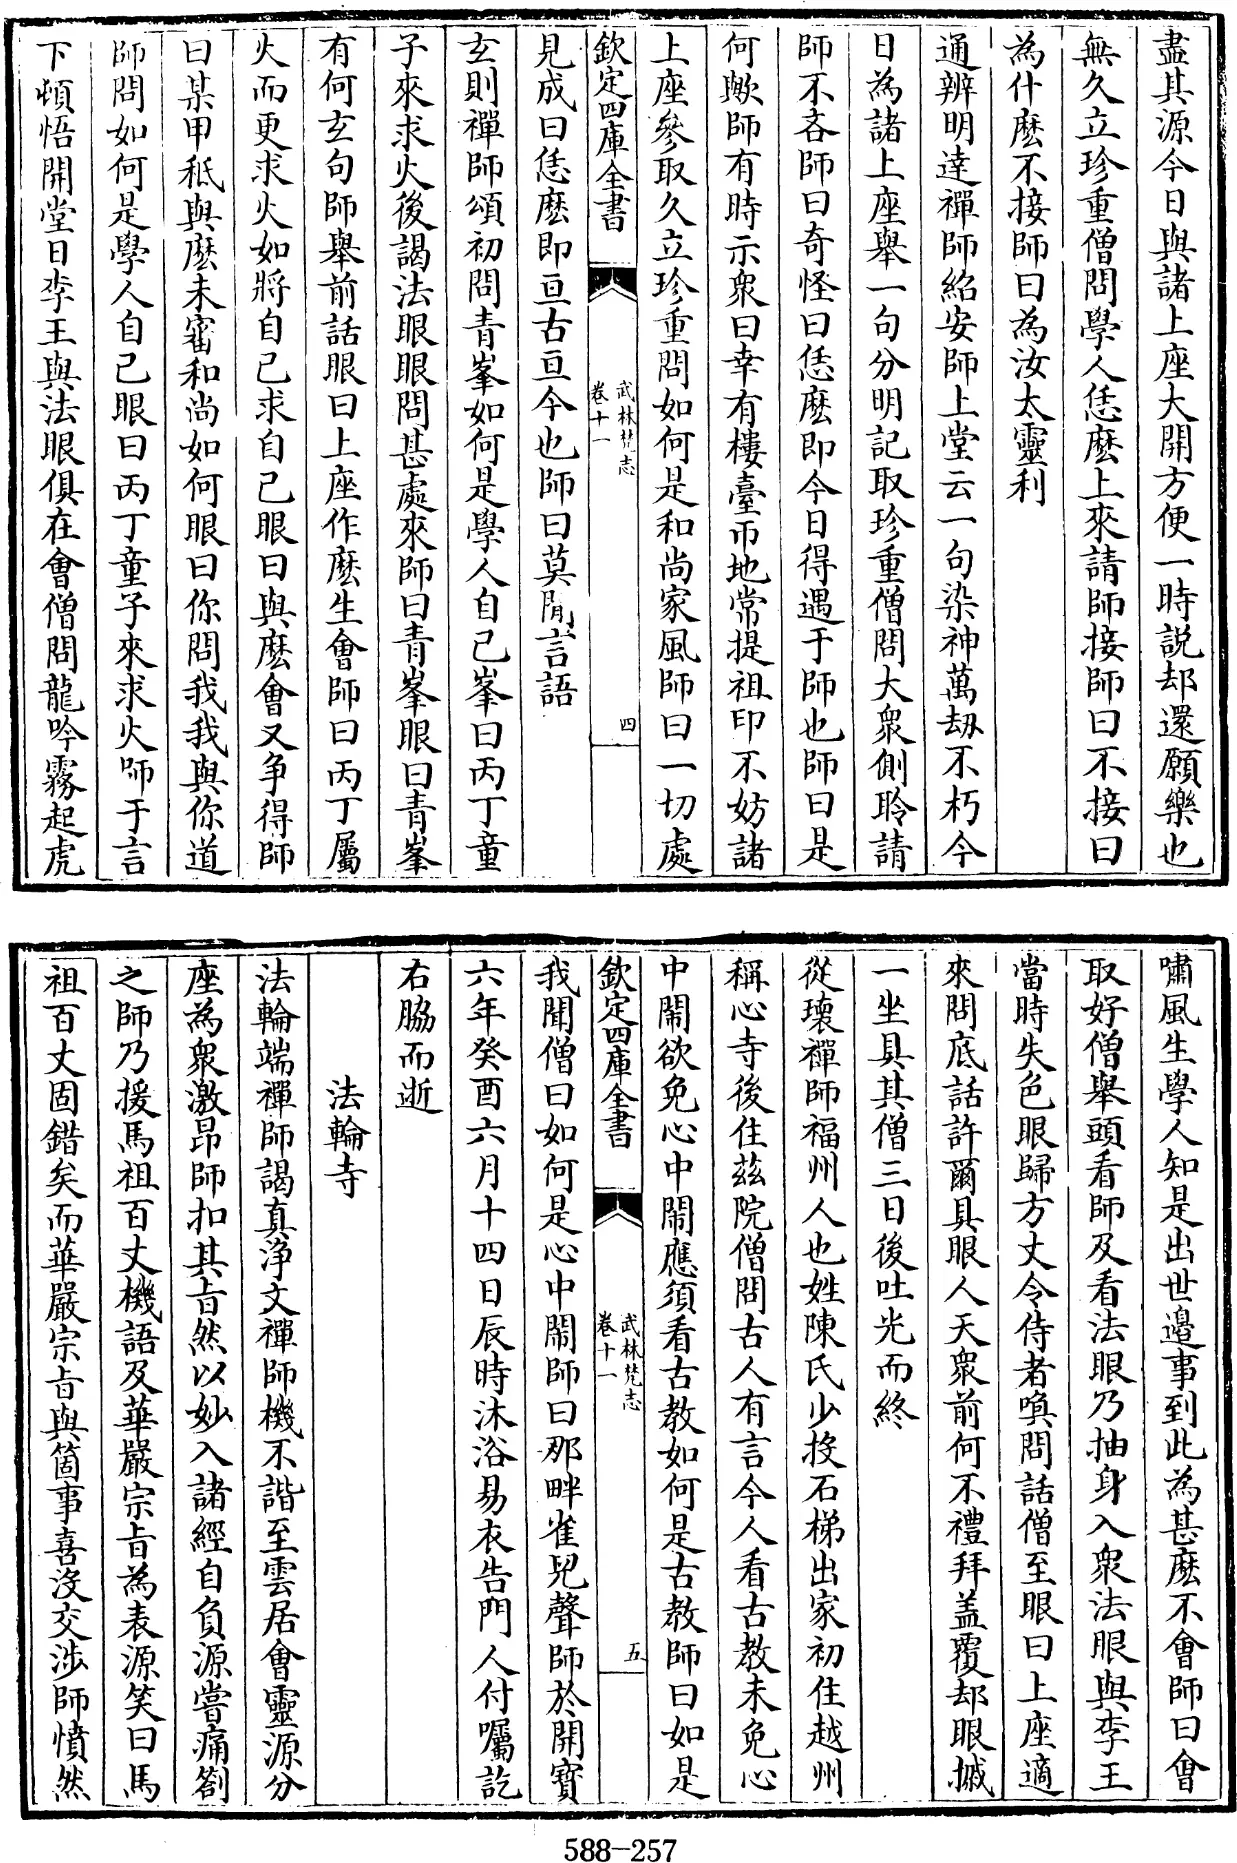 盡其源今日與諸上座大開方便一時說却還願樂也
無久立珍重僧問學人恁麽上來請師接師曰不接曰
為什麽不接師曰為汝太靈利
通辨明達禪師紹安師上堂云一句染神萬劫不朽今
日為諸上座舉一句分明記取珍重僧問大衆側聆請
師不吝師曰奇怪曰恁麽即今日得遇于師也師曰是
何歟師有時示衆曰幸有樓臺帀地常提祖印不妨諸
上座參取久立珍重問如何是和尚家風師曰一切處
欽定四庫全書
武林梵志
卷十一
四
見成曰恁麽即亘古亘今也師曰莫閒言語
玄則禪師頌初問青峯如何是學人自己峯曰丙丁童
子來求火後謁法眼眼問甚處來師曰青峯眼曰青峯
有何玄句師舉前話眼曰上座作麽生會師曰丙丁屬
火而更求火如將自己求自己眼曰與麽會又爭得師
曰某甲秪與麽未審和尚如何眼曰你問我我與你道
師問如何是學人自己眼曰丙丁童子來求火師于言
下頓悟開堂日李王與法眼俱在會僧問龍吟霧起虎
嘯風生學人知是出世邉事到此為甚麽不會師曰會
取好僧舉頭看師及看法眼乃抽身入衆法眼與李王
當時失色眼歸方丈令侍者喚問話僧至眼曰上座適
來問底話許爾具眼人天衆前何不禮拜盖覆却眼摵
一坐具其僧三日後吐光而終
從瓌禪師福州人也姓陳氏少投石梯出家初住越州
稱心寺後住茲院僧問古人有言今人看古教未免心
中鬧欲免心中鬧應須看古教如何是古教師曰如是
欽定四庫全書
武林梵志
卷十一
五
我聞僧曰如何是心中鬧師曰那畔雀兒聲師於開寶
六年癸酉六月十四日辰時沐浴易衣告門人付囑訖
右脇而逝
法輪寺
法輪端禪師謁真淨文禪師機不諧至雲居會靈源分
座為衆激昂師扣其旨然以妙入諸經自負源嘗痛劄
之師乃援馬祖百丈機語及華嚴宗旨為表源笑曰馬
祖百丈固錯矣而華嚴宗旨與箇事喜沒交涉師憤然
588-257